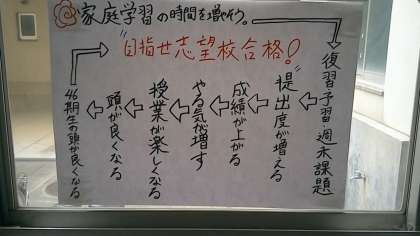 家庭学習の時間を増やそう。
"目指せ志望校合格!"
復習予習週末課題
"提出度が増える
成績が上がる
やる気が増す
授業が楽しくなる
頭が良くなる
46期生の頭が良くなる